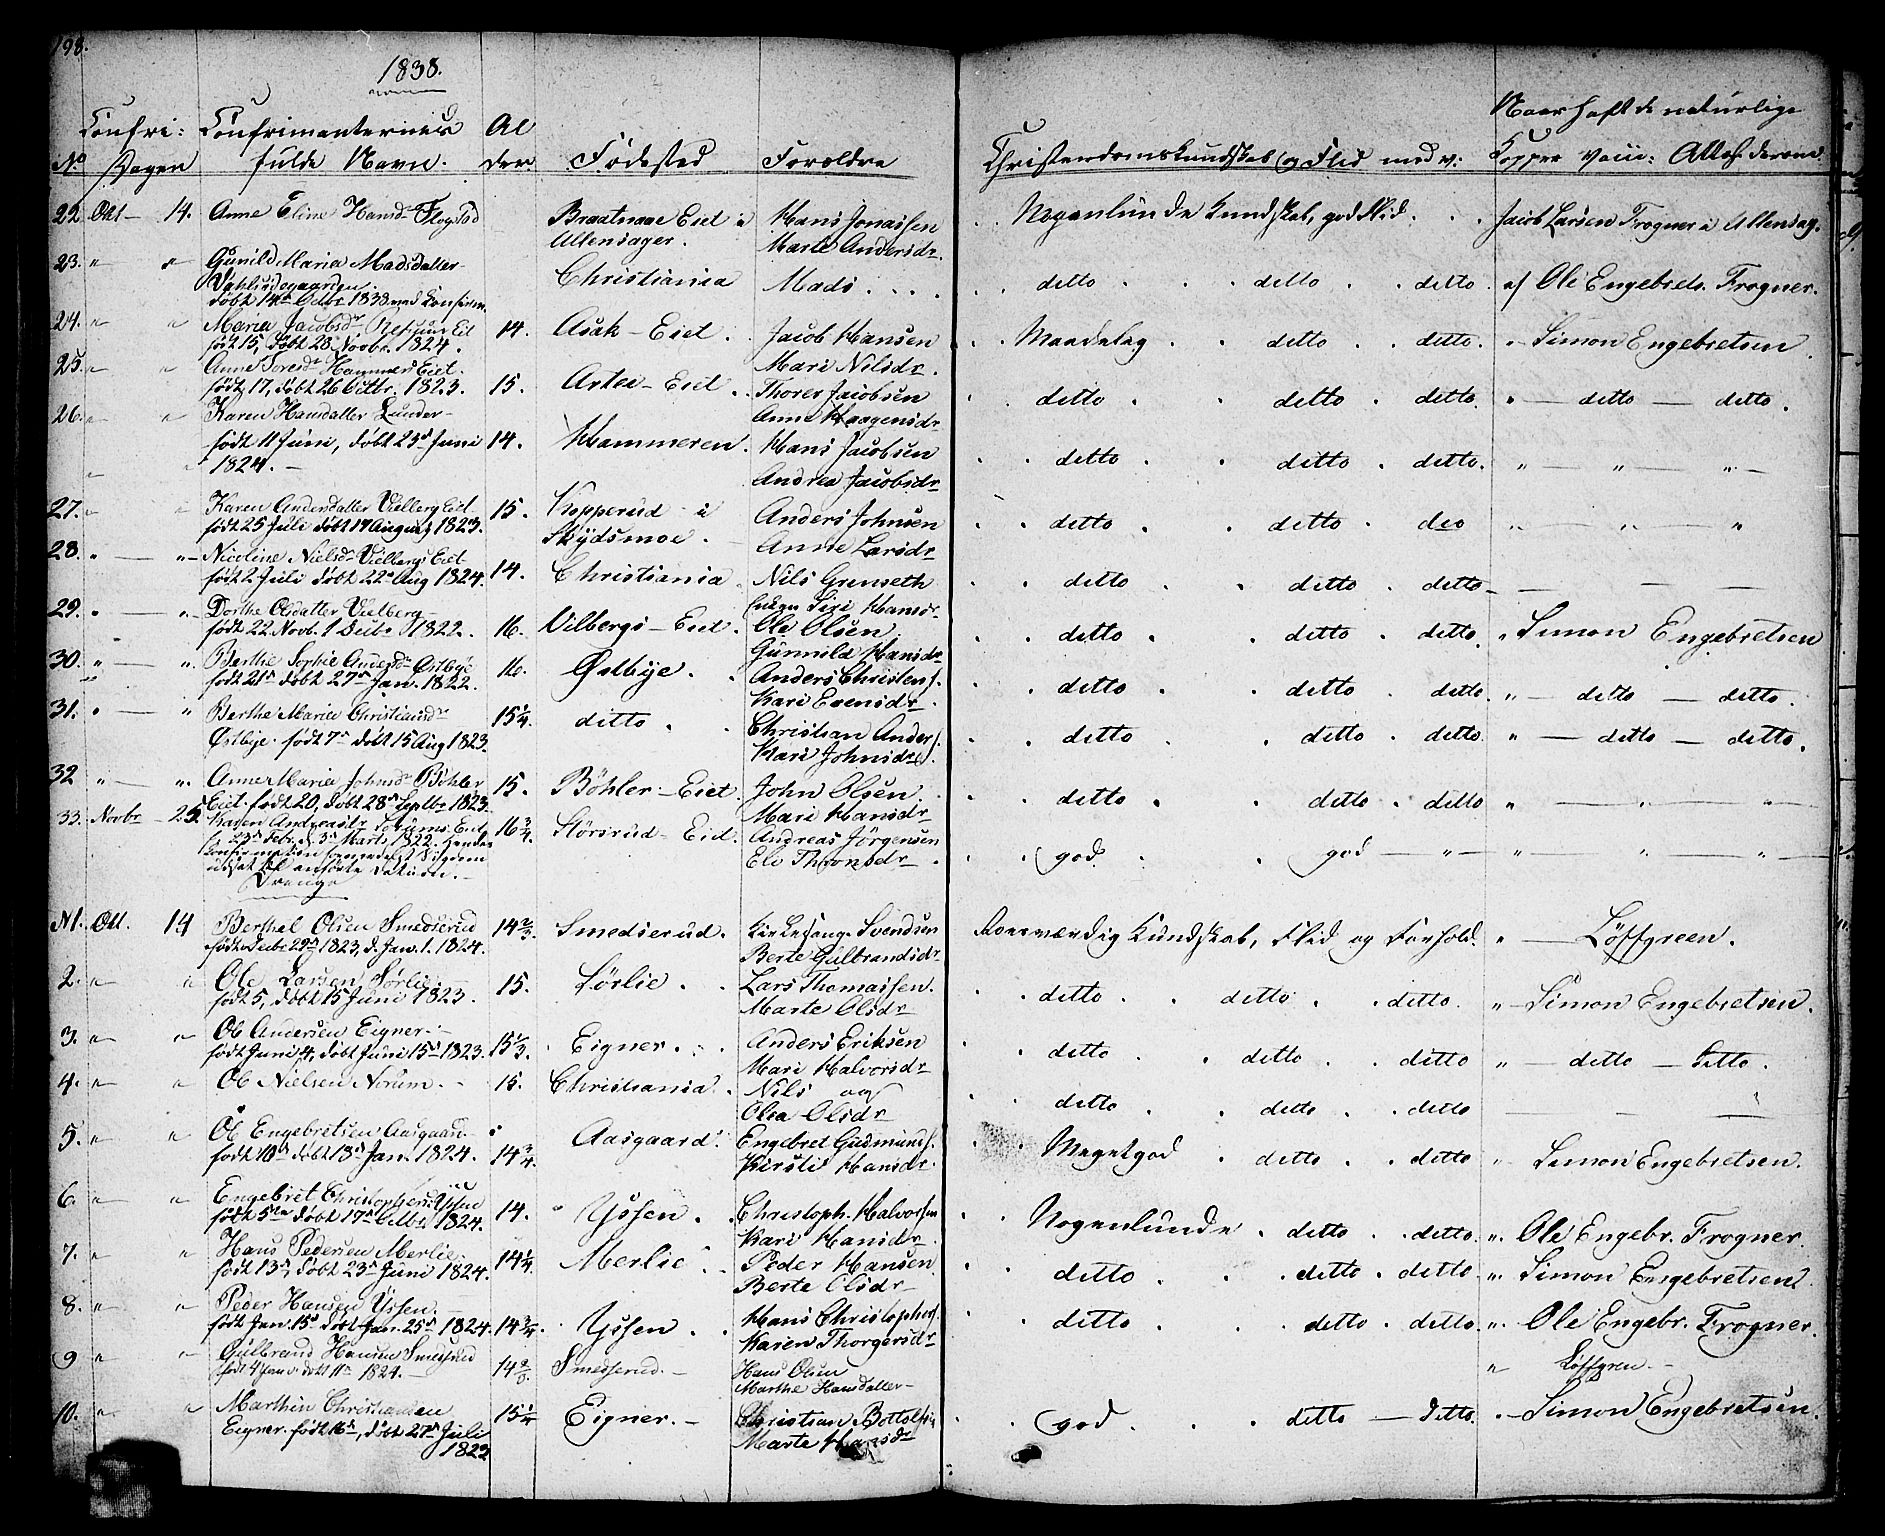 198.
1838.
No Confri: Dagen Confrimanternes fulde Navn. Alder. Fødested Foreldre Christendomskundskab og Flid med v: Naar haft de naturlige Kopper Vacci: Attest derom
22. Okt — 14. Anne Eline Hansdr Flogstad Braatnaae Eiet i Ullensager. Hans Jonassen Marte Andersdr. Nogenlunde Kundskab, god Flid. Jacob Larsen Frogner i Ullensag.
23. " " Gunild Maria Madsdatter døbt 14de Octbr 1838 med Confirm. Christiania Mads . . . . ditto ditto ditto. af Ole Engebrets. Frogner.
24. " " Maria Jacobsdr Refsum Eit født 15, døbt 28 Novbr. 1824. 14. Asak — Eiet. Jacob Hansen Mari Nilsdr. Maadelag ditto ditto. " Simon Engebretsen.
25. " " Anne Toresdr Hammers Eiet. født 17, døbt 26 Octbr. 1823. 15. Arteo — Eiet. Thorer Jacobsen Anne Haagensdr ditto ditto ditto. " — ditto — ditto.
26. " " Karen Hansdatter Lunder født 11 Juni, døbt 23d Juni 1824. — 14. Hammeren. Hans Jacobsen Andrea Jacobsdr ditto ditto ditto. " — " — " —
27. " " Karen Andersdatter Vielberg Eiet født 25 Juli døbt 17 August 1823. 15. Kopperud i Skydsmoe. Anders Johnsen Anne Larsdr ditto ditto do " — " — "
28. " — " Nicoline Nielsdr Vielbergs Eiet født 2 Juli døbt 22d Aug 1824. 14. Christiania Nils Grenseth Siri Hansdr ditto ditto ditto — — — —
29. " — " Dorthe Olsdatter Vielberg født 22. Novb. 1 Decbr 1822. 16. Vilbergs — Eiet. Ole Olsen Gunnild Hansdr ditto ditto ditto. " Simon Engebretsen
30. " — " Berthe Sophie Andersdr Østbye født 21d døbt 27d Jan. 1822. 16. Østbye. Anders Christens. Kari Evensdr. ditto ditto ditto. " — ditto — ditto.
31. " — " Berthe Maria Christiansdr Østbye. født 7d døbt 15 Aug 1823. 15¼. ditto. Christian Anders. Kari Johnsdr. ditto ditto ditto. " — ditto — ditto.
32 " — " Anne Maria Johnsdr Bøhler Eiet. født 20, døbt 28d Septbr 1823. 15. Bøhler — Eiet. John Olsen Mari Hansdr. ditto ditto ditto " — " — " —
33. Novbr — 25. Karen Andreasdr Sørums Eiet f. 23d Febr. d. 3d Marts 1822. Hendes Confirmation formedelst Sygdom udsat til anførte Datum. — 16¾. Størsrud — Eid. Andreas Jørgensen Eli Thronsdr. god. god — " — " " — " —
Drenge
N1. Okt. 14 Berthel Olsen Smedserud født Decbr 29d 1823, d. Jan. 1. 1824. 14⅔. Smedserud. Kirkesang. Svendsen Berte Gulbrandsdr Roesværdig Kundskab, Flid og Forhold. " — Løffgreen.
2. " " Ole Larsen Sørlie. født 5, døbt 15 Juni 1823. 15. Sørlie. Lars Thomassen. Marte Olsdr ditto ditto ditto. " Simon Engebretsen.
3. " " Ole Andersen Eigner. født Juni 4, døbt Juni 15d 1823. 15⅓. Eigner. Anders Eriksen Mari Halvorsdr ditto ditto ditto " — ditto — ditto.
4. " " Ole Nielsen Norum. 15. Christiania. Nils og Olea Olsdr ditto ditto ditto — — —
5. " " Ole Engebretsen Aasgaard. født 10d døbt 18d Jan. 1824. 14¾. Aasgaard. Engebret Gudmunds. Kirsti Hansdr. Meget god ditto ditto " Simon Engebretsen.
6. " " Engebret Christophersen Yssen født 5te døbt 17d Octbr 1824. 14. Yssen. Christoph. Halvorsen Kari Hansdr. Nogenlunde ditto ditto. " Ole Engebr. Frogner.
7. " " Hans Pedersen Merlie. født 13d, døbt 23d Juni 1824. 14¼. Merlie. Peder Hansen Berte Olsdr ditto ditto ditto. " Simon Engebretsen.
8. " " Peder Hansen Yssen. født Jan. 15d døbt Jan. 25d 1824. 14¾. Yssen. Hans Christophers. Karen Thorgersdr ditto ditto ditto. " Ole Engebr. Frogner.
9 " " Gulbrand Hansen Smedsrud født 4 Janv. døbt 11d 1824. — Smedserud. — Hans Olsen Marthe Hansdatter — " Løffgren. —
10. " " Marthin Christiansen Eigner. født 16d, døbt 27d Juli 1823 15¼ Eigner. — Christian Bottolfsen Marte Hansdr god. ditto — ditto. " Simon Engebretsen.